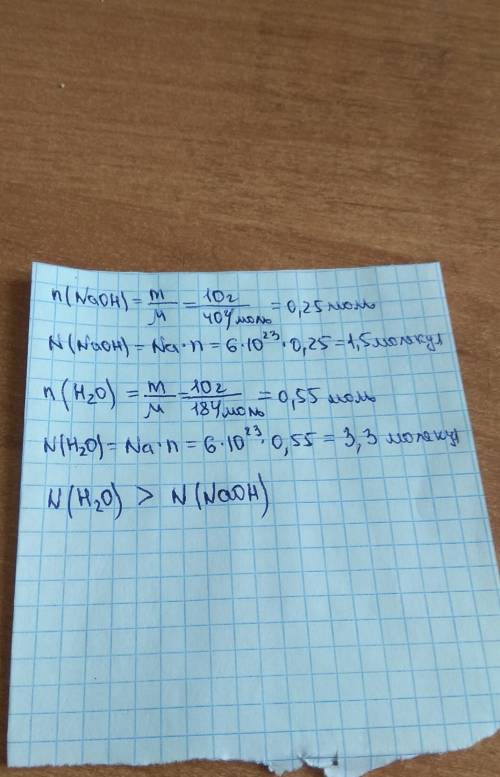 n(NaOH) = m/M = 10г/40г/моль = 0,25 моль
N(NaOH) = Na·n = 6·10²³·0,25 = 1,5 молекул
n(H₂O) = m/M = 10г/18г/моль = 0,55 моль
N(H₂O) = Na·n = 6·10²³·0,55 = 3,3 молекул
N(H₂O) > N(NaOH)